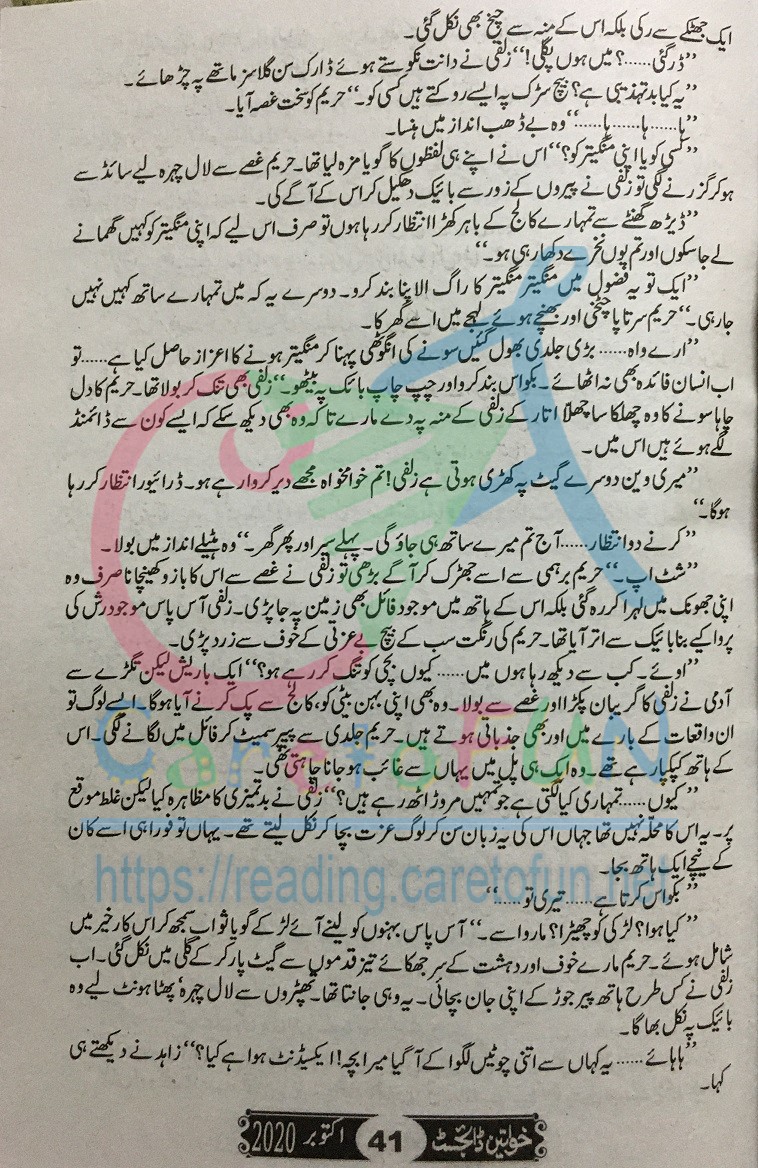 ایک جھٹکے سے رکی بلکہ اس کے منہ سے چیخ بھی نکل گئی۔
”ڈر گئی……؟ میں ہوں پگلی!“ زلفی نے دانت نکوستے ہوئے ڈارک سن گلاسز ماتھے پہ چڑھائے۔
”یہ کیا بدتہذیبی ہے؟ بیچ سڑک پہ ایسے روکتے ہیں کسی کو۔“ حریم کو سخت غصہ آیا۔
”ہا……ہا……ہا……“ وہ بے ڈھب انداز میں ہنسا۔
”کسی کو یا اپنی منگیتر کو؟“ اس نے اپنے ہی لفظوں کا گویا مزہ لیا تھا۔ حریم غصے سے لال چہرہ لیے سائڈ سے
ہو کر گزرنے لگی تو زلفی نے پیروں کے زور سے بائیک دھکیل کر اس کے آگے کی۔
”ڈیڑھ گھنٹے سے تمہارے کالج کے باہر کھڑا انتظار کر رہا ہوں تو صرف اس لیے کہ اپنی منگیتر کو کہیں گھمانے
لے جا سکوں اور تم یوں نخرے دکھا رہی ہو۔“
”ایک تو یہ فضول میں منگیتر منگیتر کا راگ الاپنا بند کرو۔ دوسرے یہ کہ میں تمہارے ساتھ کہیں نہیں
جا رہی۔“ حریم سرتا پا چٹخی اور بھنچے ہوئے لہجے میں اسے گھرکا۔
”ارے واہ…… بڑی جلدی بھول گئیں سونے کی انگوٹھی پہنا کر منگیتر ہونے کا اعزاز حاصل کیا ہے…… تو
اب انسان فائدہ بھی نہ اٹھائے۔ بکواس بند کرو اور چپ چاپ بائک پہ بیٹھو۔“ زلفی بھی تنک کر بولا تھا۔ حریم کا دل
چاہا سونے کا وہ چھلکا سا چھلّا اتار کے زلفی کے منہ پہ دے مارے تاکہ وہ بھی دیکھ سکے کہ ایسے کون سے ڈائمنڈ
لگے ہوئے ہیں اس میں۔
”میری وین دوسرے گیٹ پہ کھڑی ہوتی ہے زلفی! تم خوامخواہ مجھے دیر کروا رہے ہو۔ ڈرائیور انتظار کر رہا
ہوگا۔“
”کرنے دو انتظار…… آج تم میرے ساتھ ہی جاؤ گی۔ پہلے سیر اور پھر گھر۔“ وہ ہٹیلے انداز میں بولا۔
”شٹ اپ۔“ حریم برہمی سے اسے جھڑک کر آگے بڑھی تو زلفی نے غصے سے اس کا بازو کھینچا نا صرف وہ
اپنی جھونک میں لہرا کر رہ گئی بلکہ اس کے ہاتھ میں موجود فائل بھی زمین پہ جا پڑی۔ زلفی آس پاس موجود رش کی
پروا کیے بنا بائیک سے اتر آیا تھا۔ حریم کی رنگت سب کے بیچ بے عزتی کے خوف سے زرد پڑی۔
”اوئے۔ کب سے دیکھ رہا ہوں میں…… کیوں بچی کو تنگ کر رہے ہو؟“ ایک باریش لیکن تگڑے سے
آدمی نے زلفی کا گریبان پکڑا اور غصے سے بولا۔ وہ بھی اپنی بہن بیٹی کو، کالج سے پک کرنے آیا ہوگا۔ ایسے لوگ تو
ان واقعات کے بارے میں اور بھی جذباتی ہوتے ہیں۔ حریم جلدی سے پیپر سمیٹ کر فائل میں لگانے لگی۔ اس
کے ہاتھ کپکپا رہے تھے۔ وہ ایک ہی پل میں یہاں سے غائب ہو جانا چاہتی تھی۔
”کیوں…… تمہاری کیا لگتی ہے جو تمہیں مروڑ اٹھ رہے ہیں؟“ زلفی نے بدتمیزی کا مظاہرہ کیا لیکن غلط موقع
پر۔ یہ اس کا محلّہ نہیں تھا جہاں اس کی یہ زبان سن کر لوگ عزت بچا کر نکل لیتے تھے۔ یہاں تو فوراً ہی اسے کان
کے نیچے ایک ہاتھ بجا۔
”بکواس کرتا ہے…… تیری تو……“
”کیا ہوا؟ لڑکی کو چھیڑا؟ مارو اسے۔“ آس پاس بہنوں کو لینے آئے لڑکے گویا ثواب سمجھ کر اس کار خیر میں
شامل ہوئے۔ حریم مارے خوف اور دہشت کے سر جھکائے تیز قدموں سے گیٹ پار کر کے گلی میں نکل گئی۔ اب
زلفی نے کس طرح ہاتھ پیر جوڑ کے اپنی جان بچائی۔ یہ وہی جانتا تھا۔ تھپڑوں سے لال چہرہ پھٹا ہونٹ لیے وہ
بائیک پہ نکل بھاگا۔
”ہاہائے…… یہ کہاں سے اتنی چوٹیں لگوا کے آ گیا میرا بچہ! ایکسیڈنٹ ہوا ہے کیا؟“ زاہد نے دیکھتے ہی
کہا۔
CaretoFUN
https://reading.caretofun.net
خواتین ڈائجسٹ 41 اکتوبر 2020